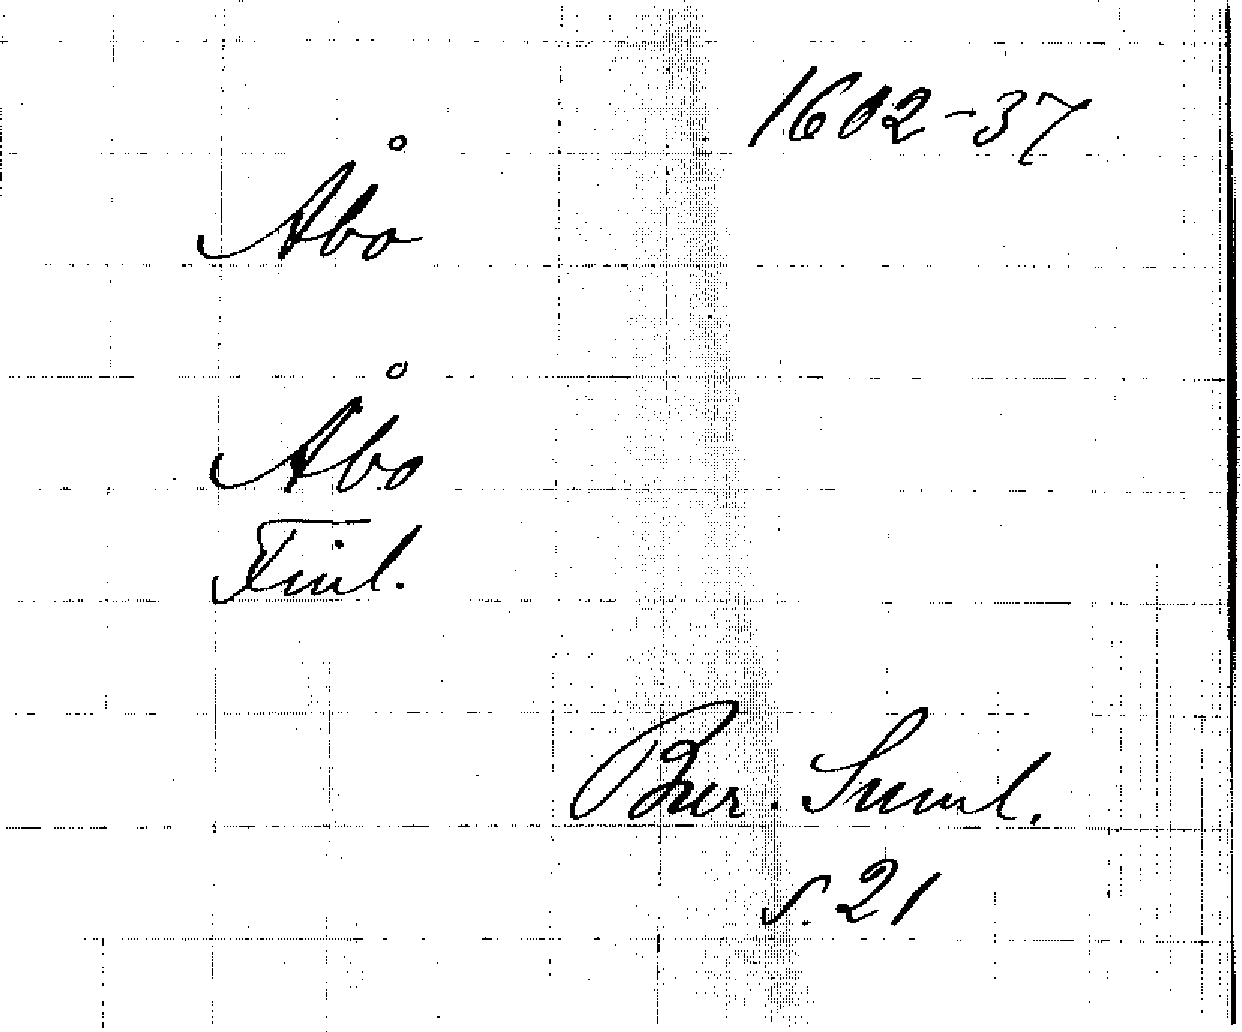 1602-37
Åbo
Åbo
Finl.
Bur. Suml.
s. 21